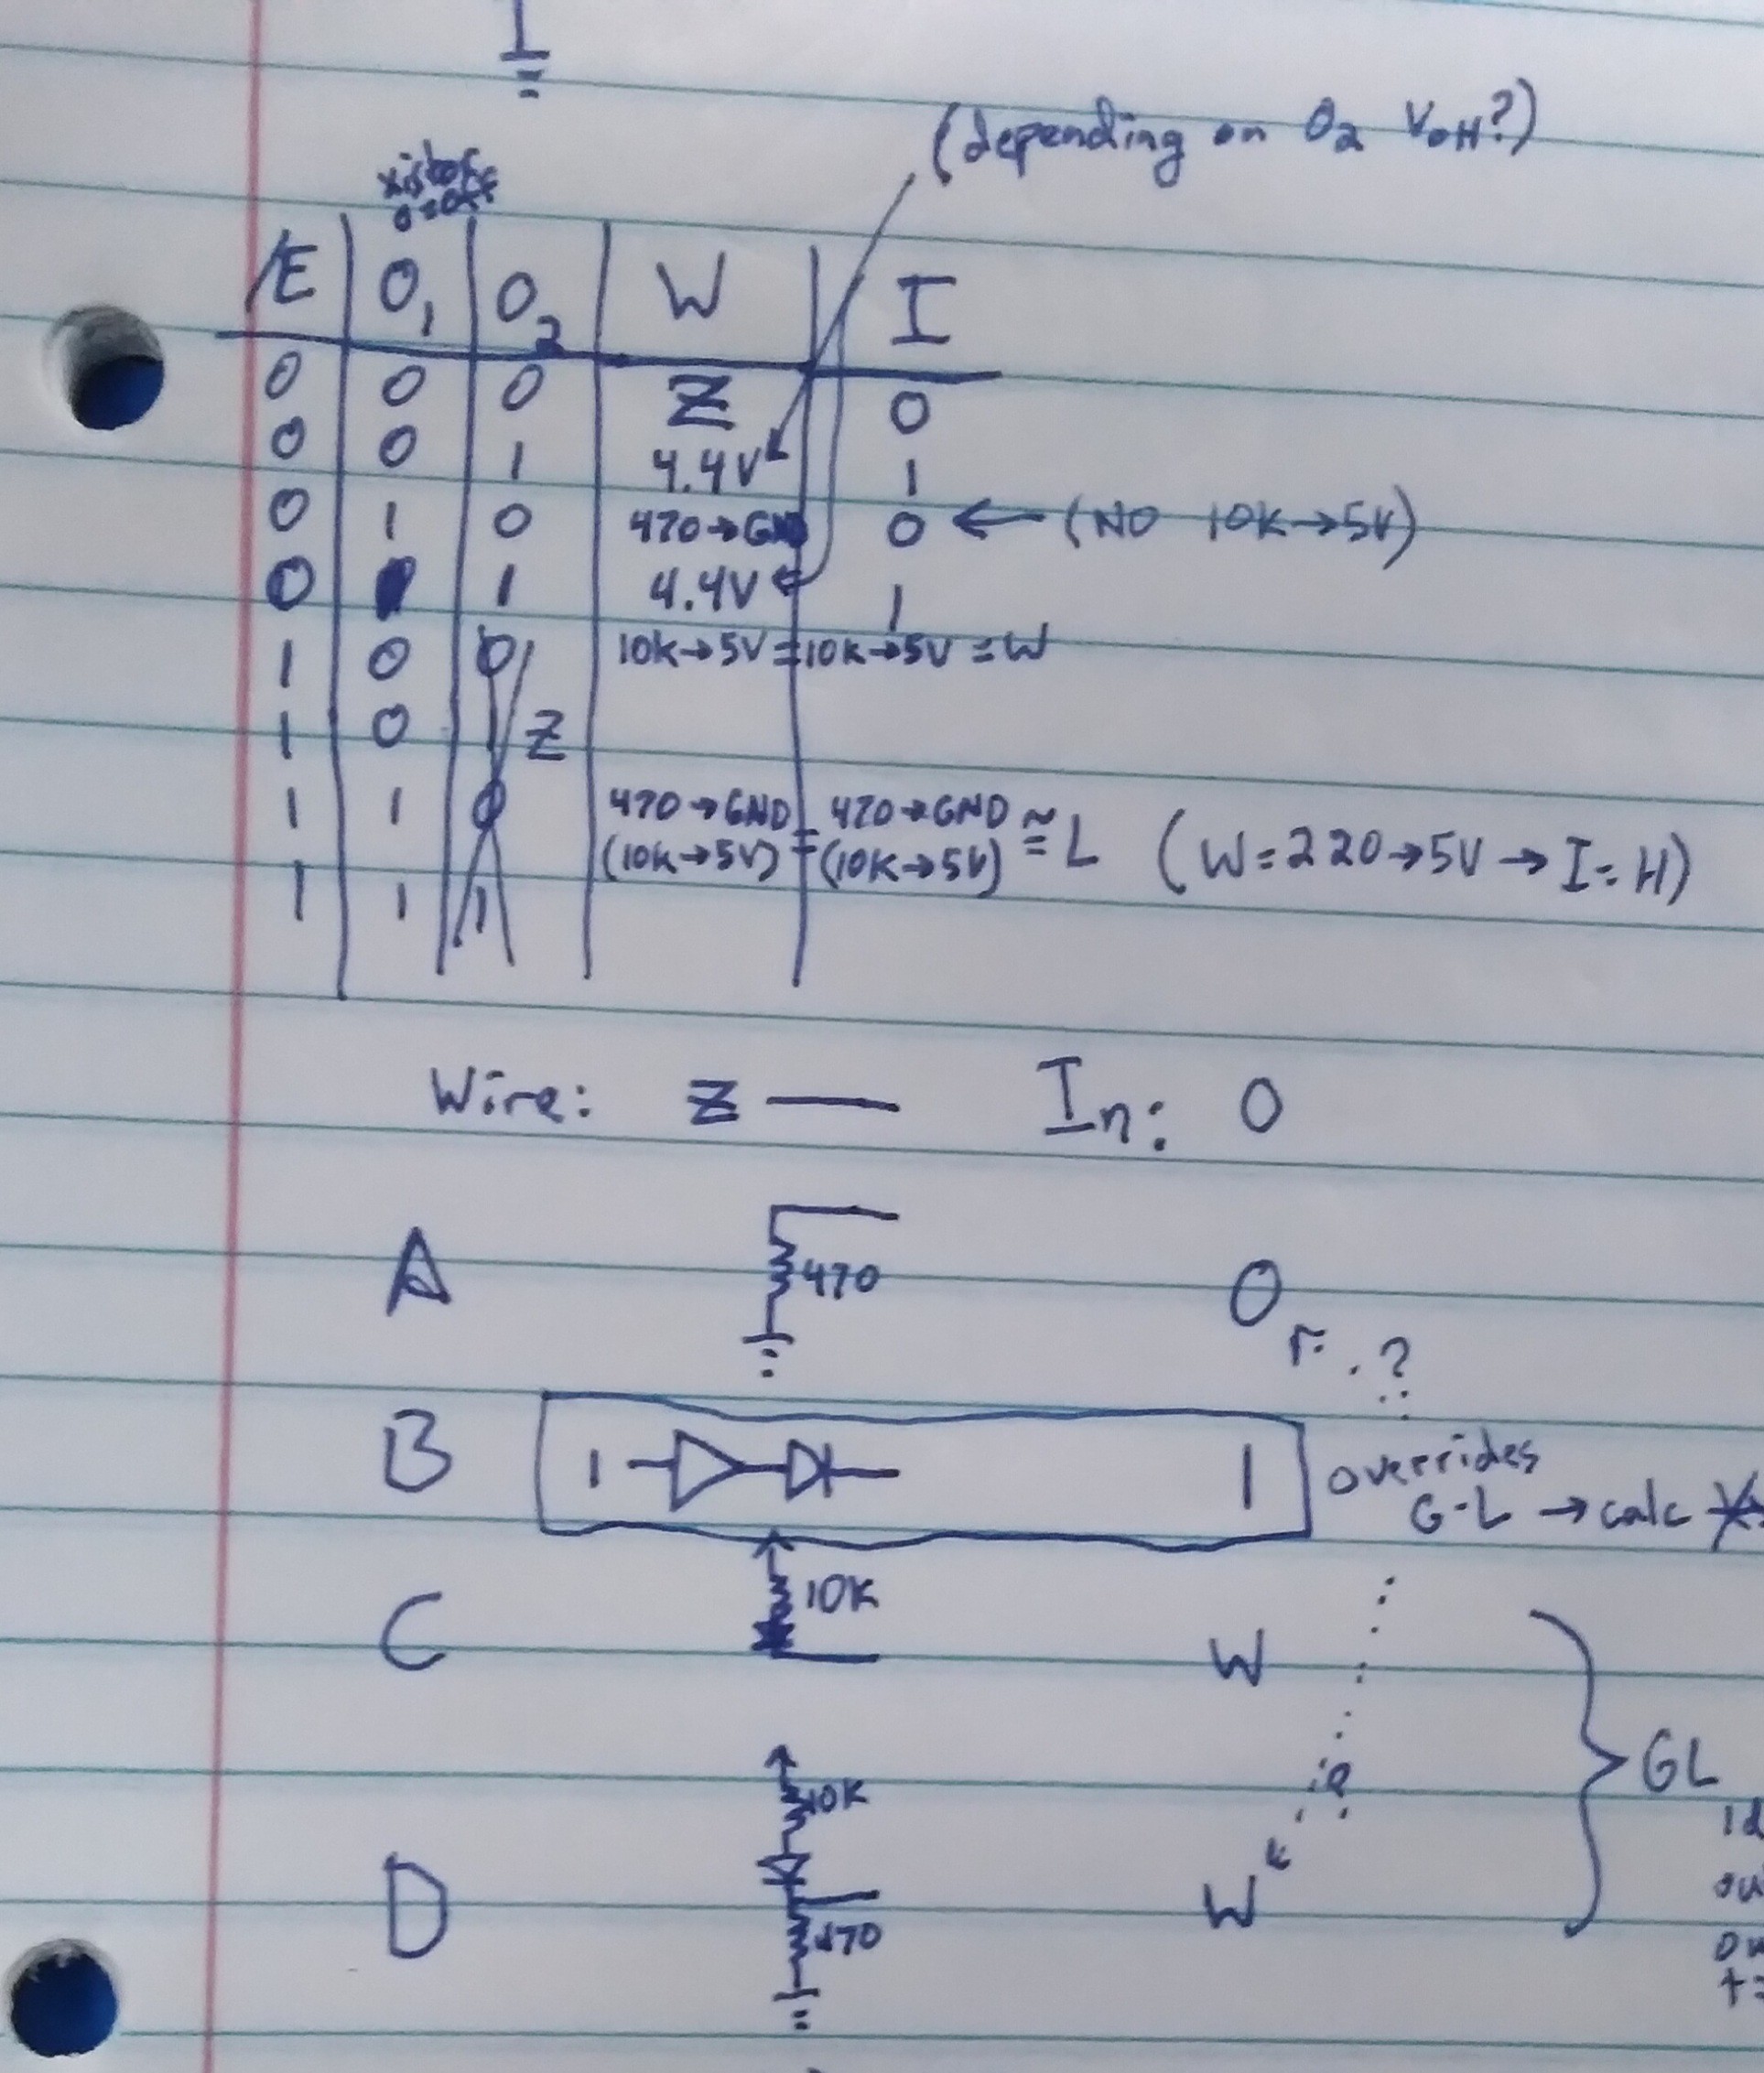 (depending on O2 VOH?)
/E O1 O2 W I
0 0 0 Z 0
0 0 1 4.4V 1
0 1 0 470→GND 0 ← (NO 10K→5V)
0 1 4.4V 1
1 0 0 10K→5V = 10K→5V = W
1 0 1 Z
1 1 0 470→GND = 470→GND ≅ L (W=220→5V→I=H)
(10K→5V) (10K→5V)
1 1 1
Wire: Z In: 0
A 470 0
?
B 1 1 overrides
G-L → calc
C 10K W
GL
D 10K W
470